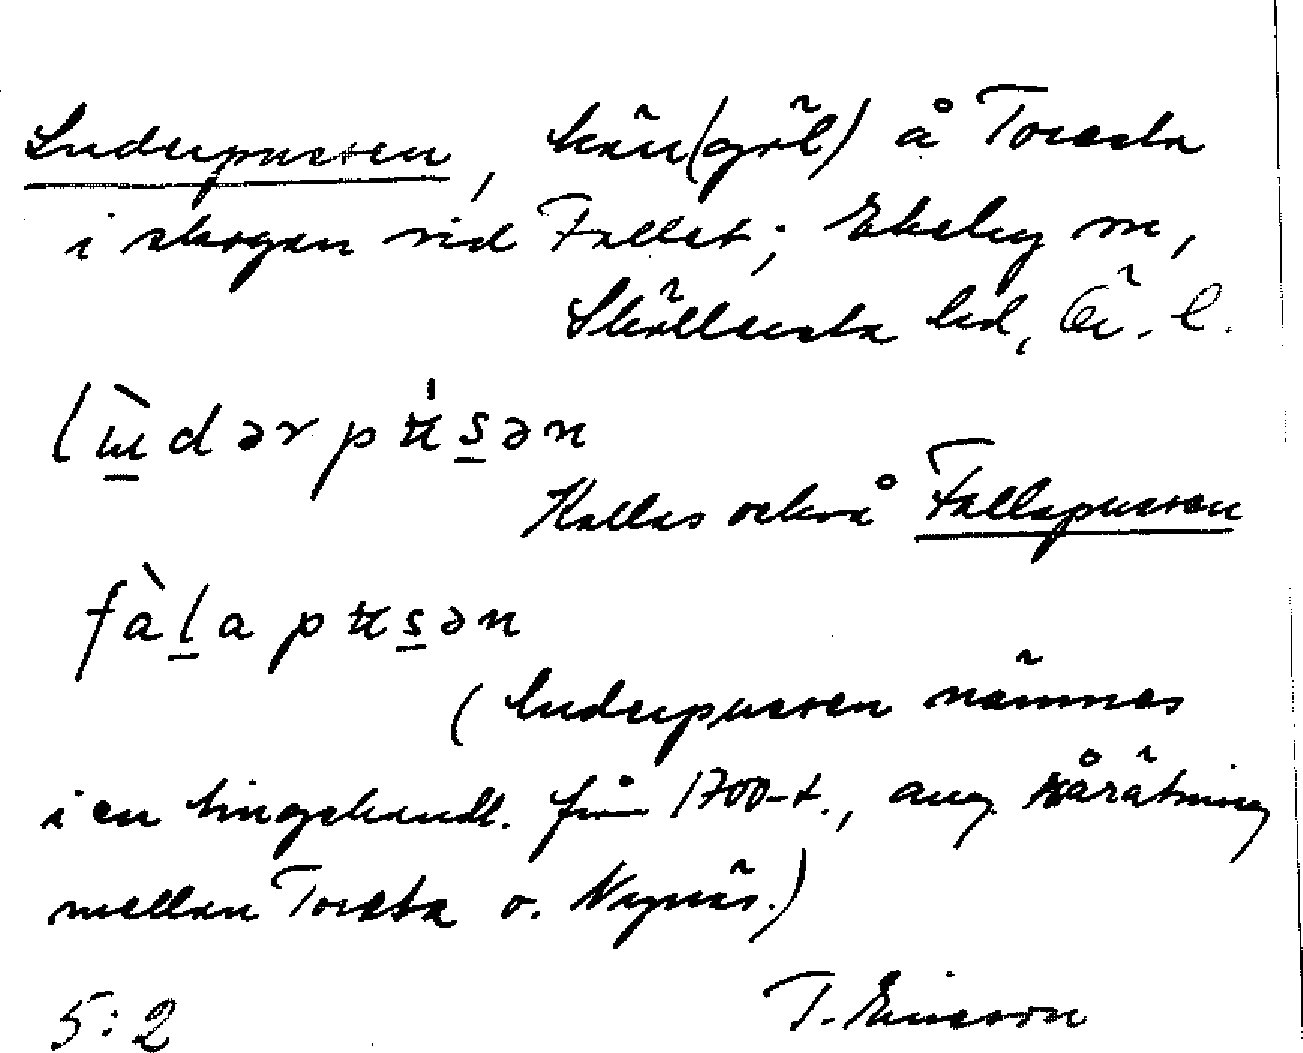 Luderpussen, kärr(göl) å Toresta
i skogen vid Fallet; Ekeby sn,
Sköllersta hd, Ö. l.
lùdərpusən
Kallas också Fallapussen
fàlapusən
(Luderpussen nämnes
i en tingshandl. från 1700-t., ang. rårätning
mellan Toresta o. Nynäs.)
5:2 T. Ericsson